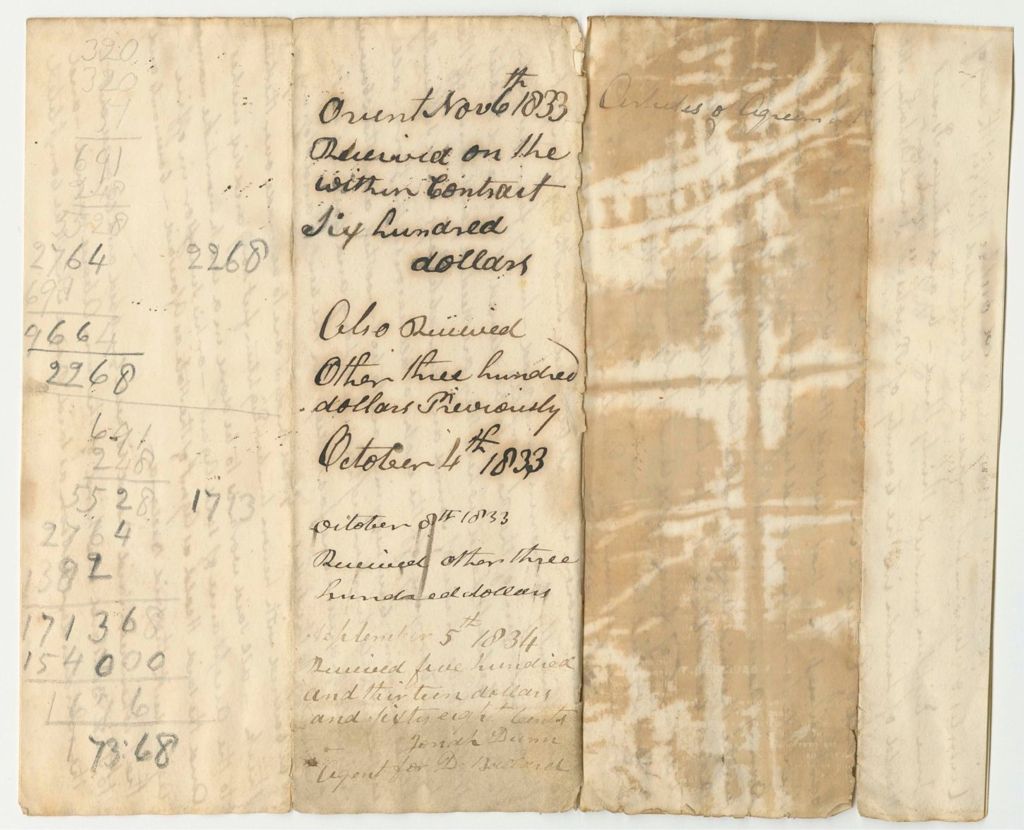 320
320
691
28
2764 2268
691
966
2268
691
248
5528 1713
2764
1382
171368
154000
73.68
Orient Nov 6th 1833
Received on the
within Contract
Six hundred
dollars
Also Received
Other three hundred
dollars Previously
October 4th 1833
October 8th 1833
Received other three
hundred dollars
September 5th 1834
Received five hundred
and thirteen dollars
and sixty eight Cents
Jonah Dunn
Agent for D.
Articles of Agreement